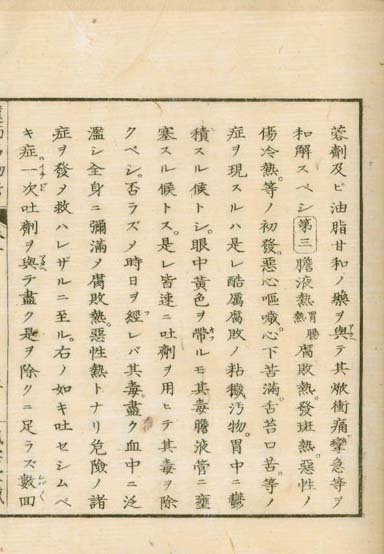 蓉劑及ヒ油脂甘和ノ藥ヲ與テ其焮衝痛攣急等ヲ
和解スベシ 第三 膽液熱胃腸熱腐敗熱。發斑熱。惡性ノ
傷冷熱。等ノ初發。惡心嘔噦。心下苦滿。舌苔口苦。等ノ
症ヲ現スルハ是レ酷厲腐敗ノ粘穢汚物。胃中ニ鬱
積スル候トシ。眼中黃色ヲ帶ルモ其毒膽液管ニ壅
塞スル候トス。是レ皆速ニ吐劑ヲ用ヒテ其毒ヲ除
クベシ。否ラズメ時日ヲ經レバ其毒。盡ク血中ニ泛
濫シ全身ニ彌滿メ腐敗熱。惡性熱トナリ危險ノ諸
症ヲ發メ救ハレザルニ至ル。右ノ如キ吐セシムベ
キ症一次吐劑ヲ與テ盡ク是ヲ除クニ足ラズ數回